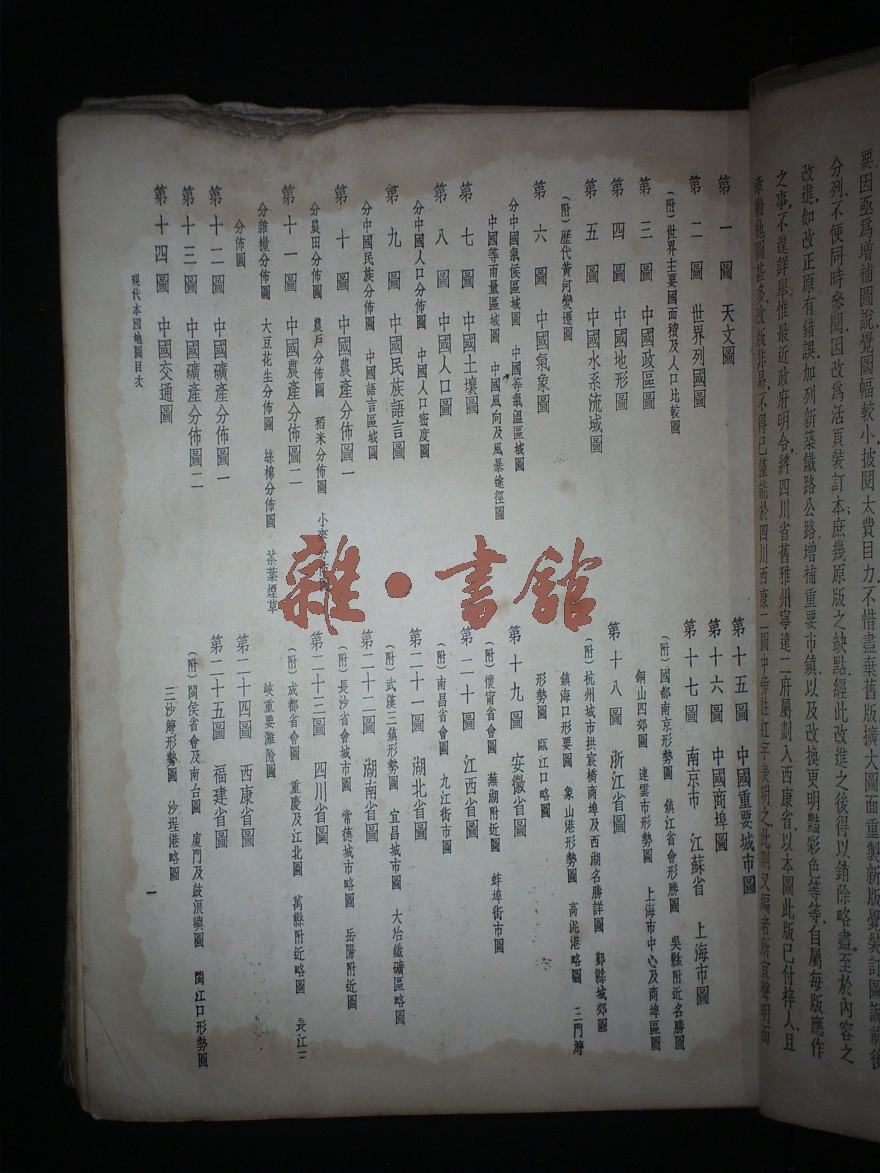 要因亟爲增補圖說覺圖幅較小披閱太費目力不惜盡棄舊版擴大圖面重製新版覺裝訂圖說前後
分列不便同時參閱因改爲活頁裝訂本庶幾原版之缺點經此改進之後得以銷除略盡至於內容之
改進如改正原有錯誤加列新築鐵路公路增補重要市鎮以及改換更明豔彩色等等自屬每版應作
之事不遑詳舉惟最近政府明令將四川省舊雅州寧遠二府屬劃入西康省以本圖此版已付梓人且
牽動他圖甚多改版非易不得已僅能於四川西康二圖中旁註紅字表明之此則又編者所宜聲明而
第一圖 天文圖
第二圖 世界列國圖
(附)世界主要國面積及人口比較圖
第三圖 中國政區圖
第四圖 中國地形圖
第五圖 中國水系流域圖
(附)歷代黃河變遷圖
第六圖 中國氣象圖
分中國氣候區域圖 中國等氣溫區域圖
中國等雨量區域圖 中國風向及風暴途徑圖
第七圖 中國土壤圖
第八圖 中國人口圖
分中國人口分佈圖 中國人口密度圖
第九圖 中國民族語言圖
分中國民族分佈圖 中國語言區域圖
第十圖 中國農產分佈圖一
分農田分佈圖 農戶分佈圖 稻米分佈圖 小麥分佈圖
第十一圖 中國農產分佈圖二
分雜糧分佈圖 大豆花生分佈圖 絲棉分佈圖 茶葉煙草
分佈圖
第十二圖 中國礦產分佈圖一
第十三圖 中國礦產分佈圖二
第十四圖 中國交通圖
第十五圖 中國重要城市圖
第十六圖 中國商埠圖
第十七圖 南京市 江蘇省 上海市圖
(附)國都南京形勢圖 鎮江省會形勝圖 吳縣附近名勝圖
銅山四郊圖 連雲市形勢圖 上海市中心及商埠區圖
第十八圖 浙江省圖
(附)杭州城市拱宸橋商埠及西湖名勝詳圖 鄞縣城郊圖
鎮海口形要圖 象山港形勢圖 高泥港略圖 三門灣
形勢圖 甌江口略圖
第十九圖 安徽省圖
(附)懷甯省會圖 蕪湖附近圖 蚌埠街市圖
第二十圖 江西省圖
(附)南昌省會圖 九江街市圖
第二十一圖 湖北省圖
(附)武漢三鎮形勢圖 宜昌城市圖 大冶鐵礦區略圖
第二十二圖 湖南省圖
(附)長沙省會城市圖 常德城市略圖 岳陽附近圖
第二十三圖 四川省圖
(附)成都省會圖 重慶及江北圖 萬縣附近略圖 長江三
峽重要灘險圖
第二十四圖 西康省圖
第二十五圖 福建省圖
(附)閩侯省會及南台圖 廈門及鼓浪嶼圖 閩江口形勢圖
三沙灣形勢圖 沙埕港略圖
現代本國地圖目次
一
雜·書館